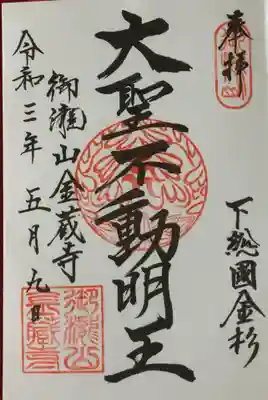 奉拝
下総國金杉
大聖不動明王
御瀧山金蔵寺
令和三年五月九日